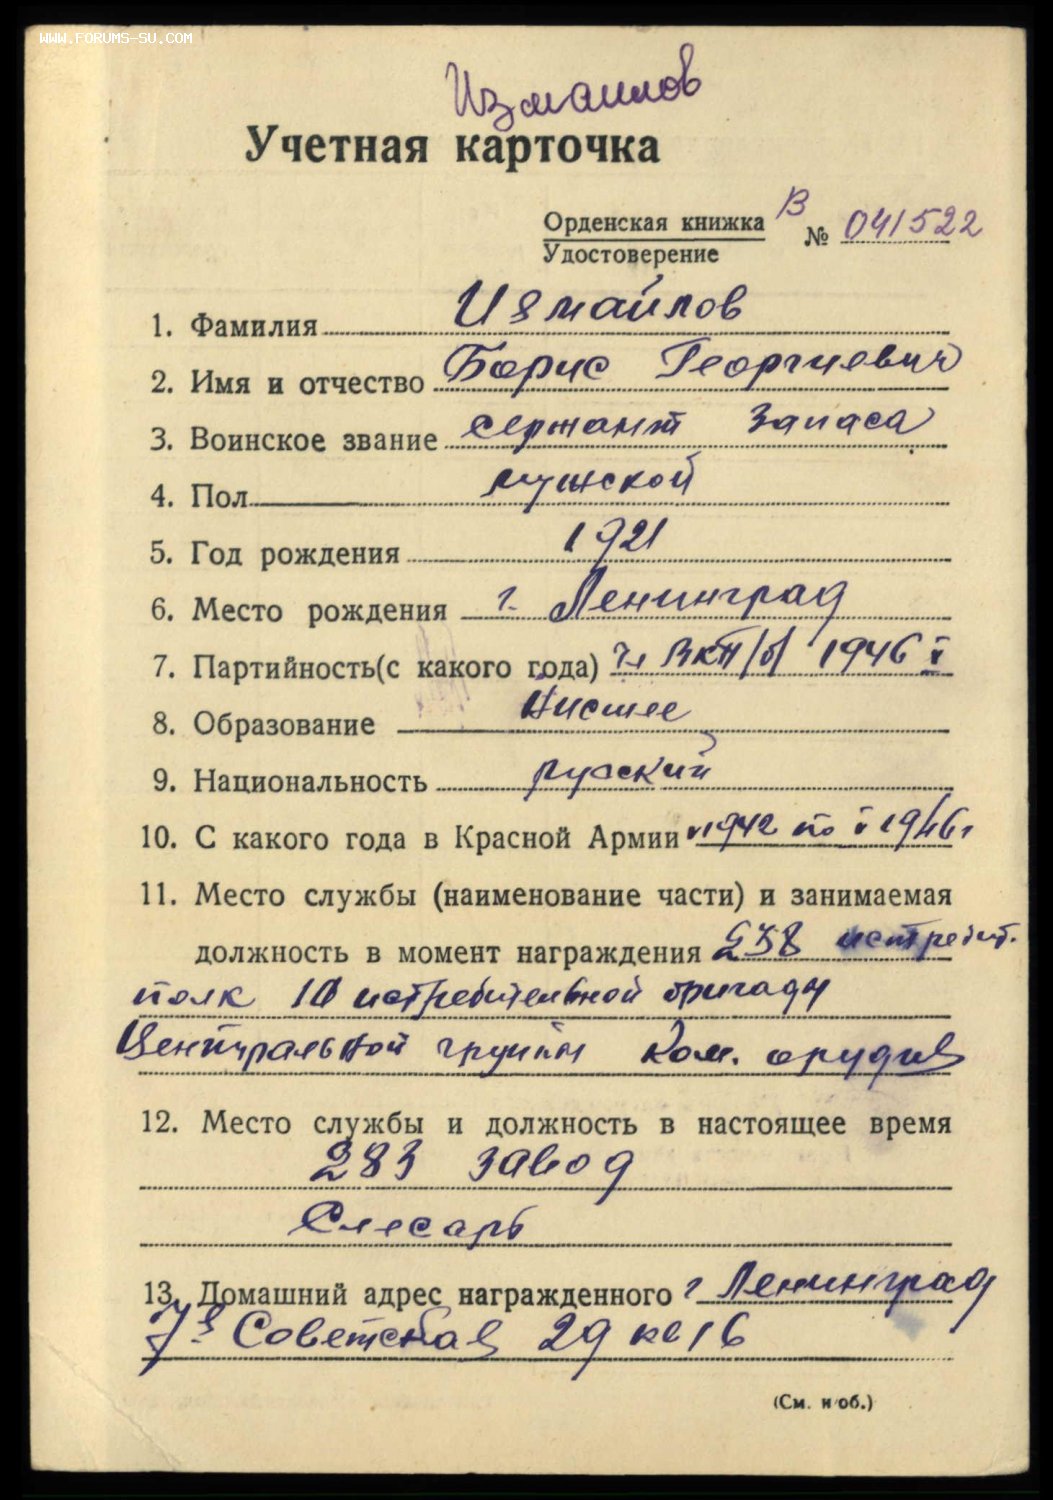 WWW.FORUMS-SU.COM
Измаилов
Учетная карточка
Орденская книжка В № 041522
Удостоверение
1. Фамилия Измайлов
2. Имя и отчество Борис Георгиевич
3. Воинское звание сержант запаса
4. Пол мужской
5. Год рождения 1921
6. Место рождения г. Ленинград
7. Партийность(с какого года) чл ВКП/б/ 1946 г
8. Образование низшее
9. Национальность русский
10. С какого года в Красной Армии 1942 по 1946 г
11. Место службы (наименование части) и занимаемая
должность в момент награждения 238 истребит.
полк 10 истребительной бригады
Центральной группы Ком. орудия
12. Место службы и должность в настоящее время
283 завод
Слесарь
13. Домашний адрес награжденного г Ленинград
7я Советская 29 кв 16
(См. и об.)